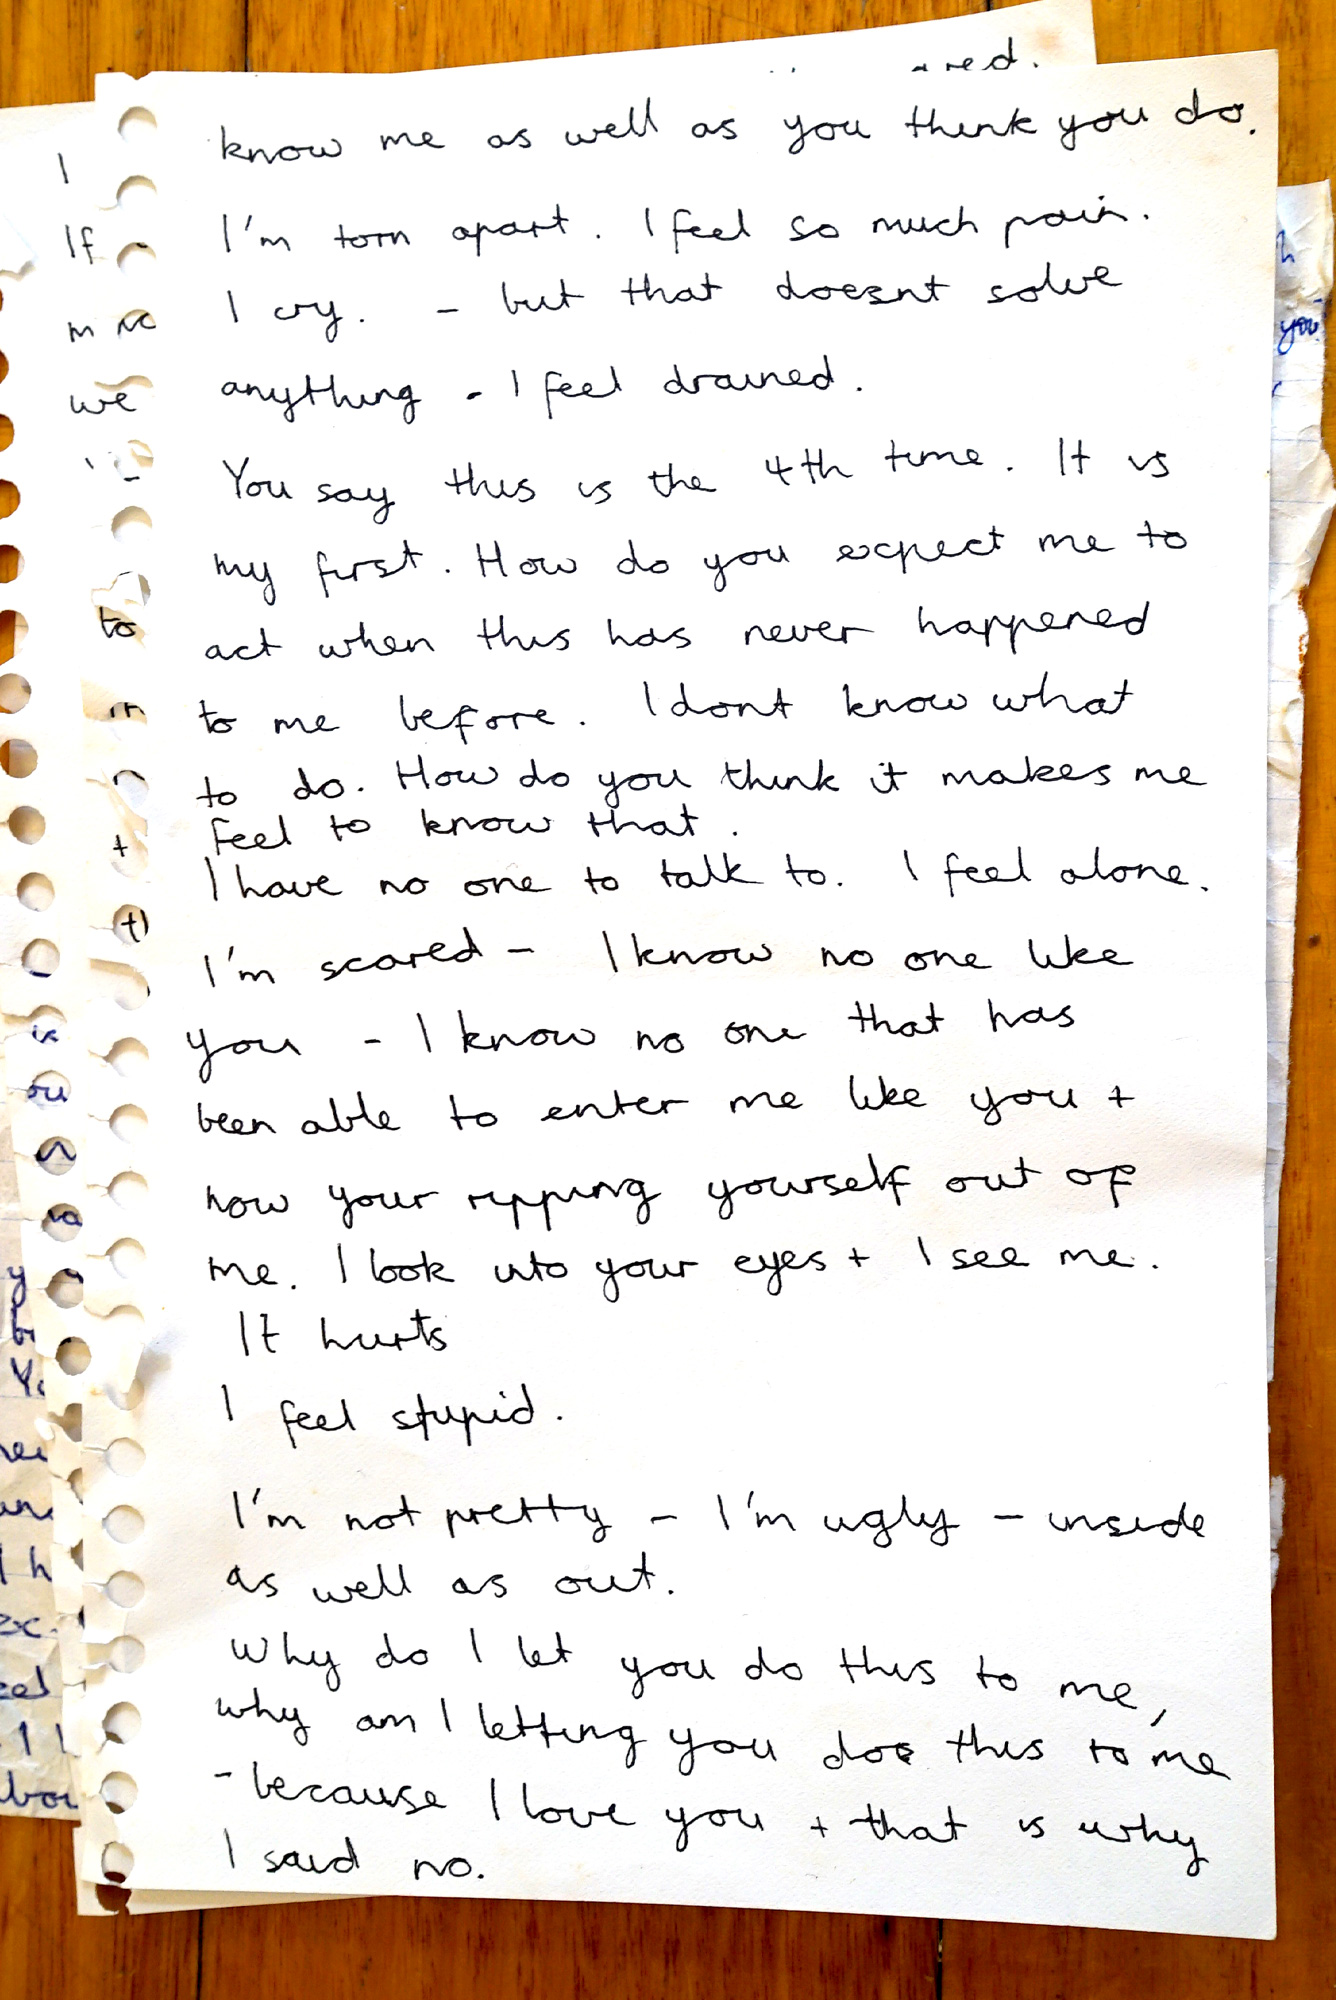 know me as well as you think you do.
I'm torn apart. I feel so much pain.
I cry. - but that doesnt solve
anything - I feel drained.
You say this is the 4th time. It is
my first. How do you expect me to
act when this has never happened
to me before. I dont know what
to do. How do you think it makes me
feel to know that.
I have no one to talk to. I feel alone.
I'm scared - I know no one like
you - I know no one that has
been able to enter me like you +
now your ripping yourself out of
me. I look into your eyes + I see me.
It hurts
I feel stupid.
I'm not pretty - I'm ugly - inside
as well as out.
Why do I let you do this to me,
why am I letting you do this to me
- because I love you + that is why
I said no.
I
If
we
to
you